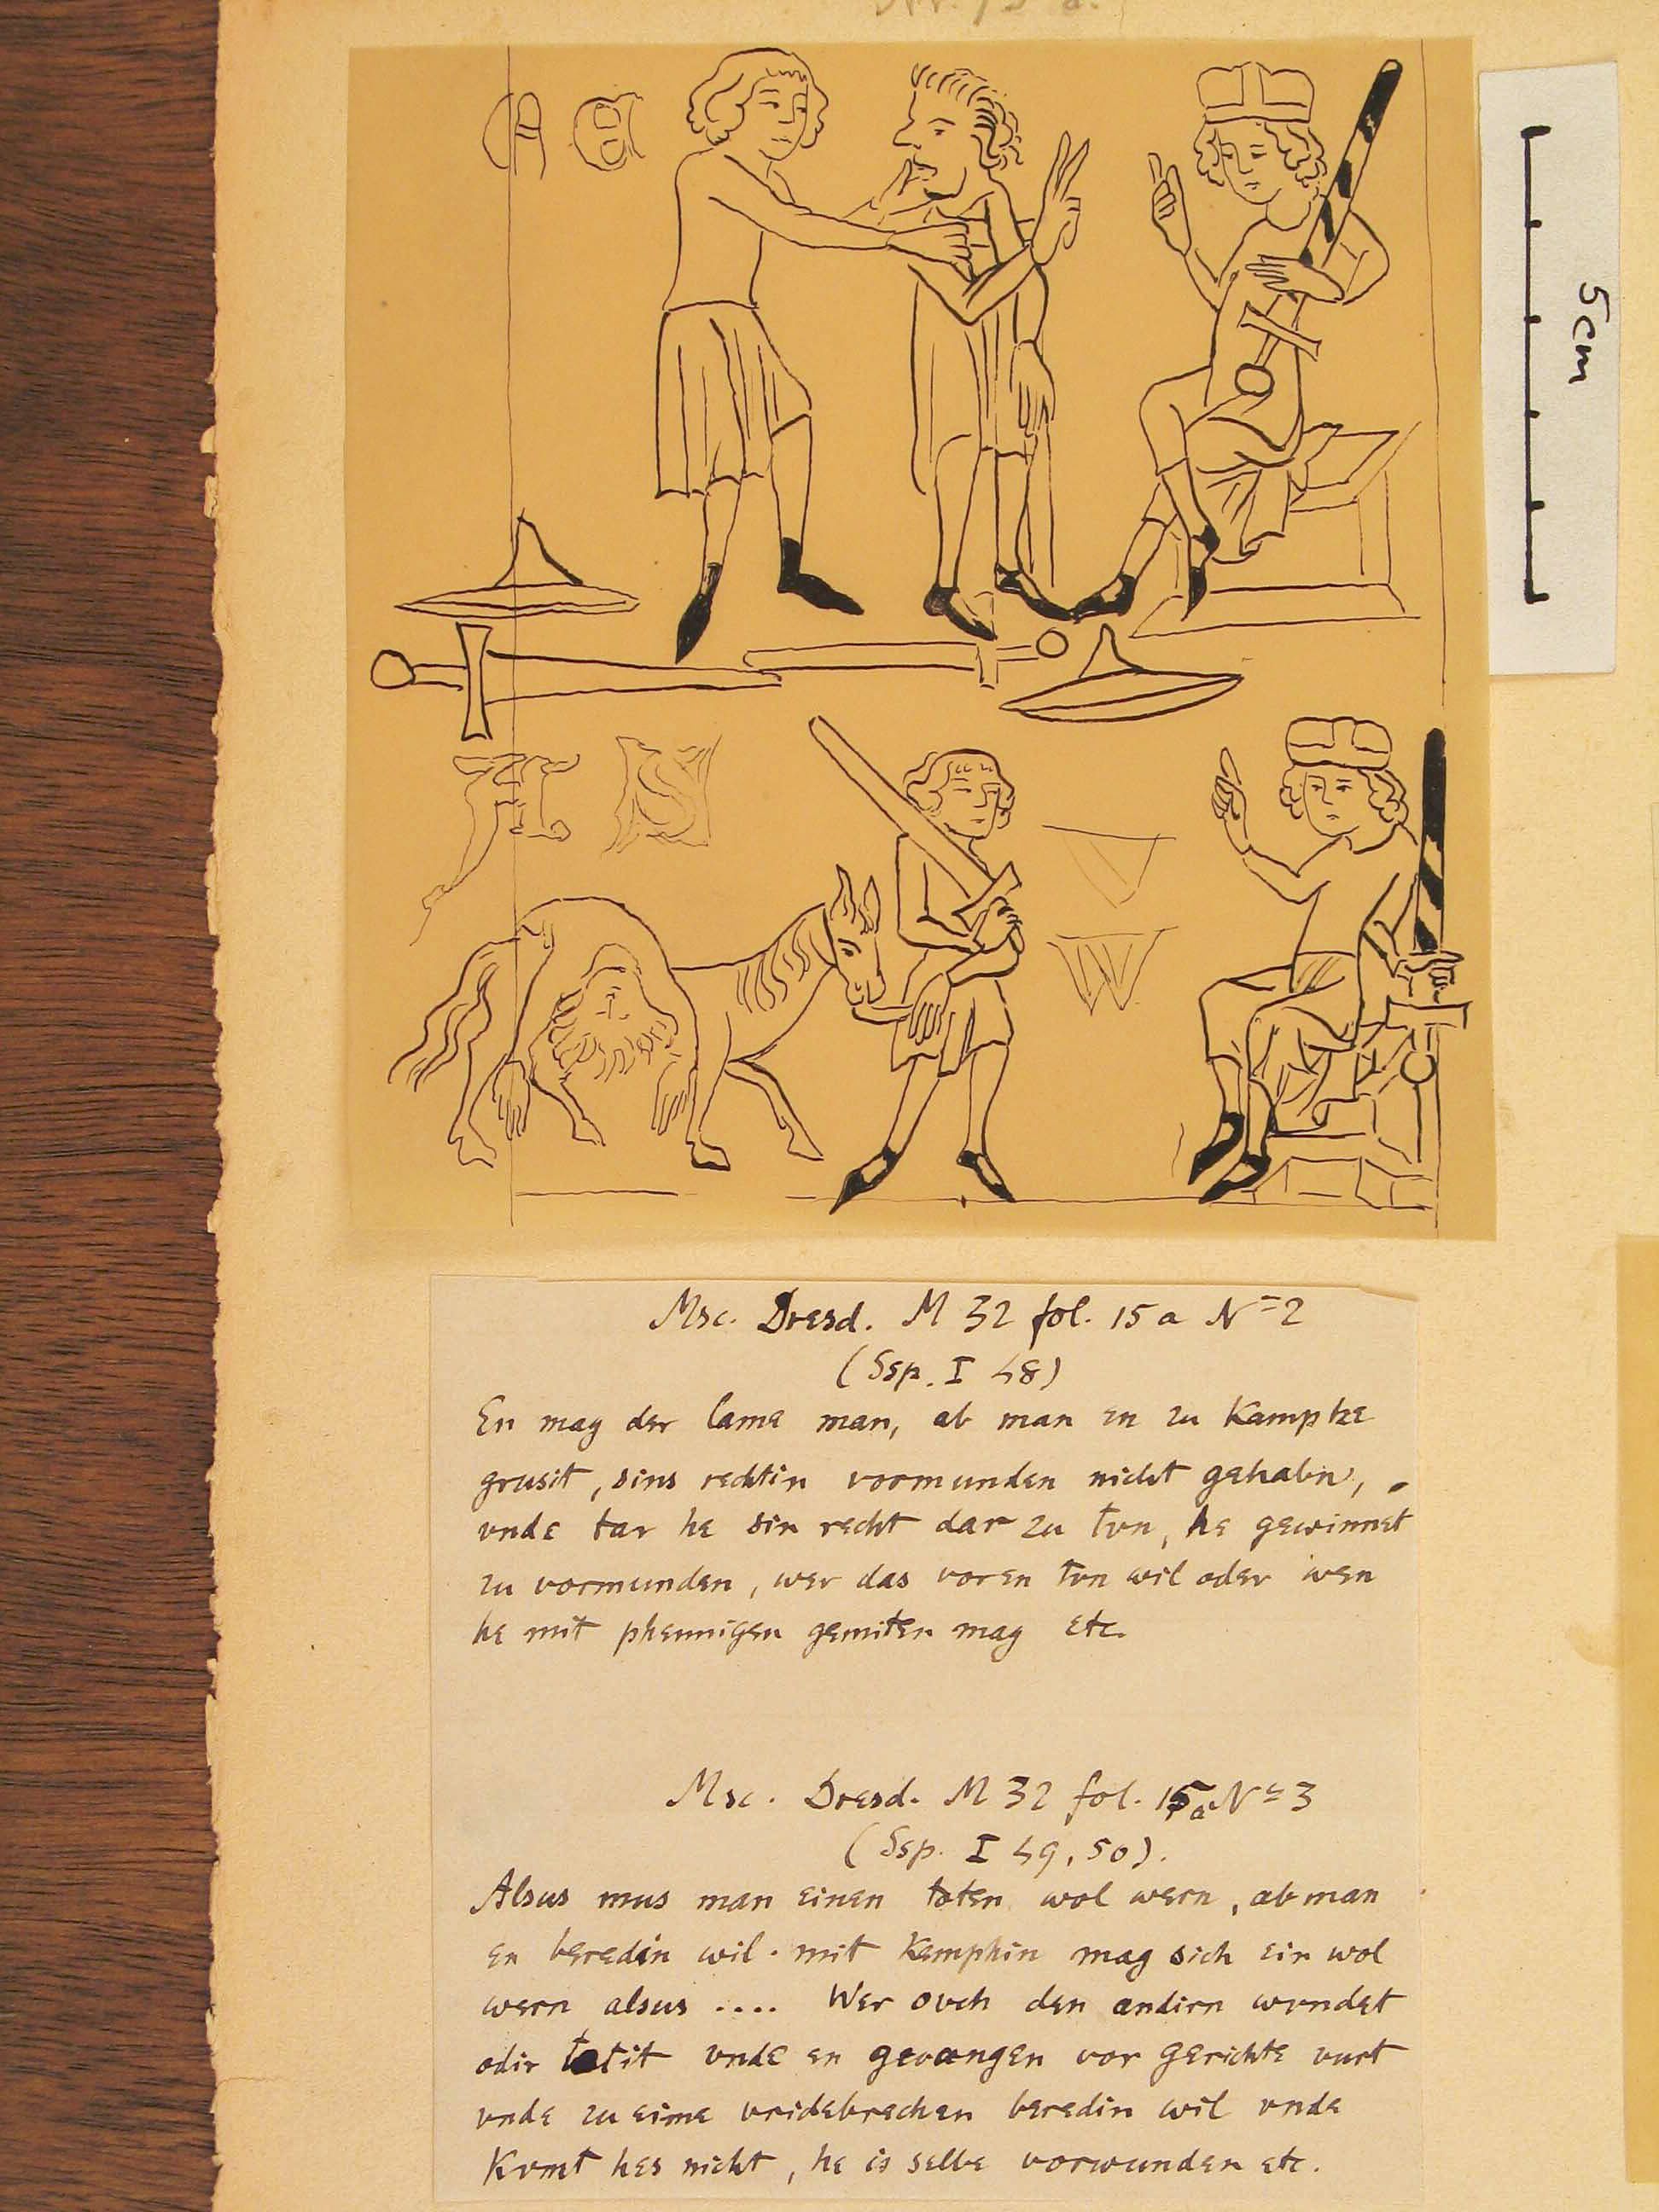 A E
5cm
S
V
W
Msc. Dresd. M 32 fol. 15 a N=2
(Ssp. I 48)
En mag der lame man, ab man en zu Kamphe
grusit, sins rechtin vormunden nicht gehabn,
vnde tar he sin recht dar zu tvn, he gewinnet
zu vormunden, wer das voren tvn wil oder wen
he mit phennigen gemiten mag etc.
Msc. Dresd. M 32 fol. 15a N=3
(Ssp. I 49, 50).
Alsus mus man einen toten wol wern, ab man
en beredin wil. mit Kemphin mag sich ein wol
wern alsus .... Wer ovch den andirn wvndet
odir totit vnde en gevangen vor gerichte vurt
vnde zu eime vridebrechen beredin wil vnde
Kvmt hes nicht, he is selbe vorwunden etc.